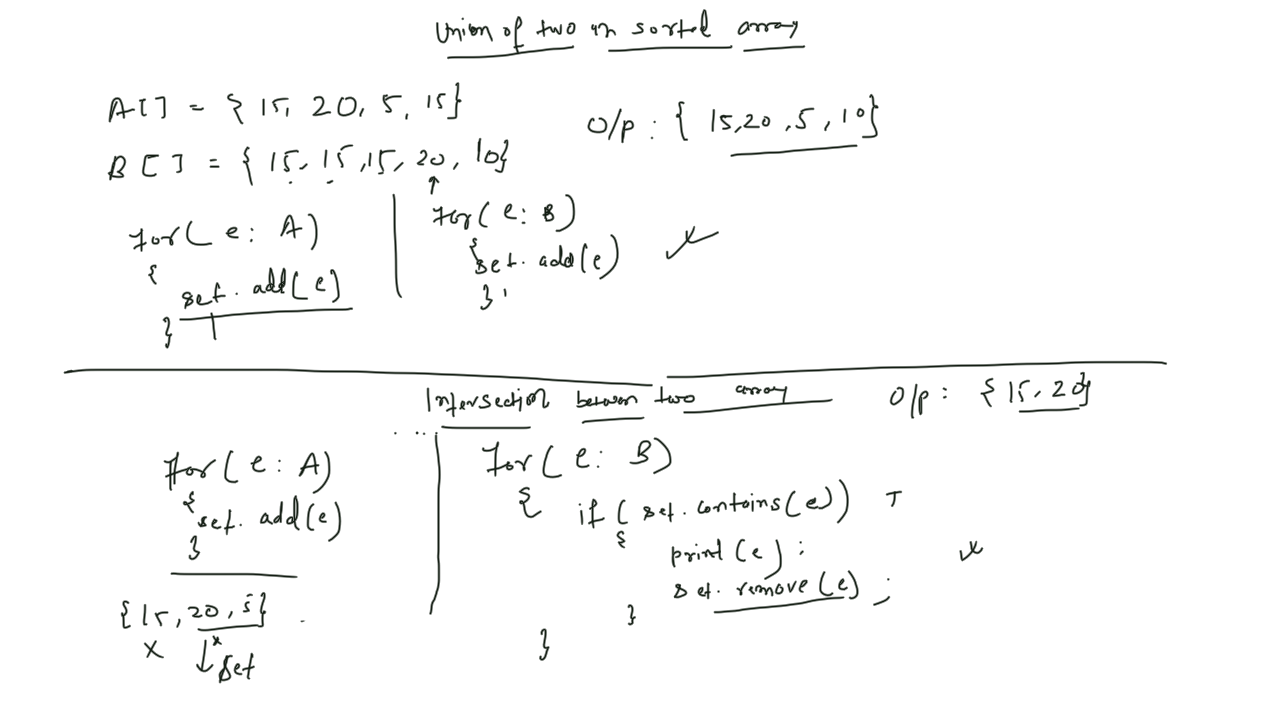 Union of two un sorted array
A[] = { 15, 20, 5, 15}
O/p : { 15,20 ,5 , 10}
B [ ] = { 15, 15 ,15, 20, 10}
for( e: A)
{
set. add( e)
}
for( e: B)
{
set. add(e)
}
Intersection between two array
O/p : { 15, 20}
for( e: A)
{
set. add(e)
}
{15, 20, 5}
set
for( e: B)
{
if ( set. contains(e)) T
{
print (e) ;
set. remove (e) ;
}
}